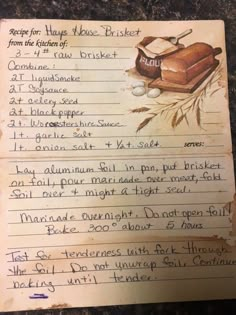 Recipe for: Hays House Brisket
from the kitchen of:
3 - 4 # raw brisket
Combine:
2T liquid Smoke
2T Soysauce
2t celery seed
2t black pepper
2t Worcestershire Sauce
1t. garlic salt serves:
1t. onion salt + ½t. salt
Lay aluminum foil in pan, put brisket
on foil, pour marinade over meat, fold
foil over + might a tight seal.
Marinade overnight. Do not open foil
Bake 300° about 5 hours
Test for tenderness with fork through
the foil. Do not unwrap foil. Continue
baking until tender.
FLOUR